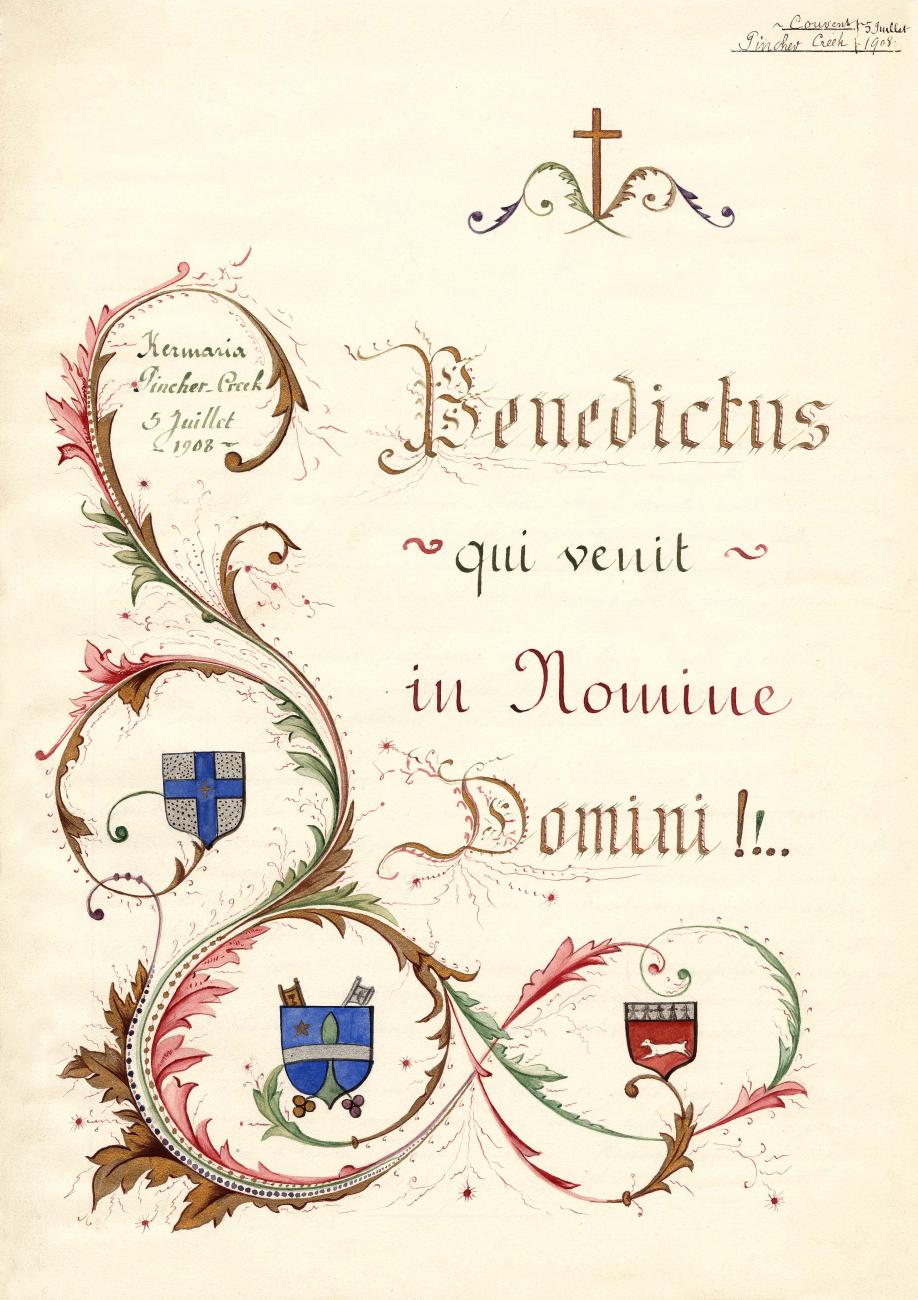 ~ Couvent 5 Juillet
Pincher Creek 1908.
Kermaria
Pincher-Creek
5 Juillet
- 1908 -
Benedictus
~ qui venit ~
in Nomine
Domini !!...